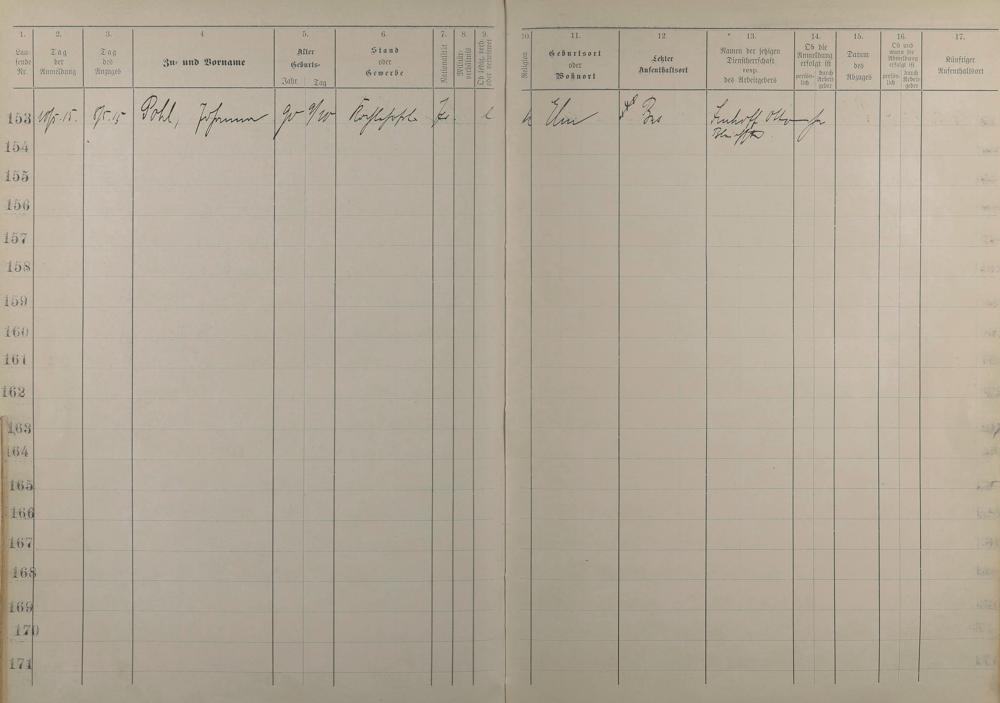 1. 2. 3. 4 5. 6. 7. 8. 9. 10. 11. 12 13. 14. 15. 16. 17.
Lau-
fende
Nr.
Tag
der
Anmeldung
Tag
des
Anzuges
Zu- und Vorname
Alter
Geburts-
Jahr Tag
Stand
oder
Gewerbe
Nationalität
Militär-
verhältnis
Ob ledig, verh.
oder verwitwet
Religion
Geburtsort
oder
Wohnort
Letzter
Aufenthaltsort
Namen der jetzigen
Dienstherrschaft
resp.
des Arbeitgebers
Ob die
Anmeldung
erfolgt ist
persön-
lich
durch
Arbeit
geber
Datum
des
Abzuges
Ob und
wann die
Abmeldung
erfolgt ist
persön-
lich
durch
Arbeit
geber
Künftiger
Aufenthaltsort
153 10/5. 15. 8/5. 15 Pohl, Johanna 90 9/10 l Otto
154
155
156
157
158
159
160
161
162
163
164
165
166
167
168
169
170
171